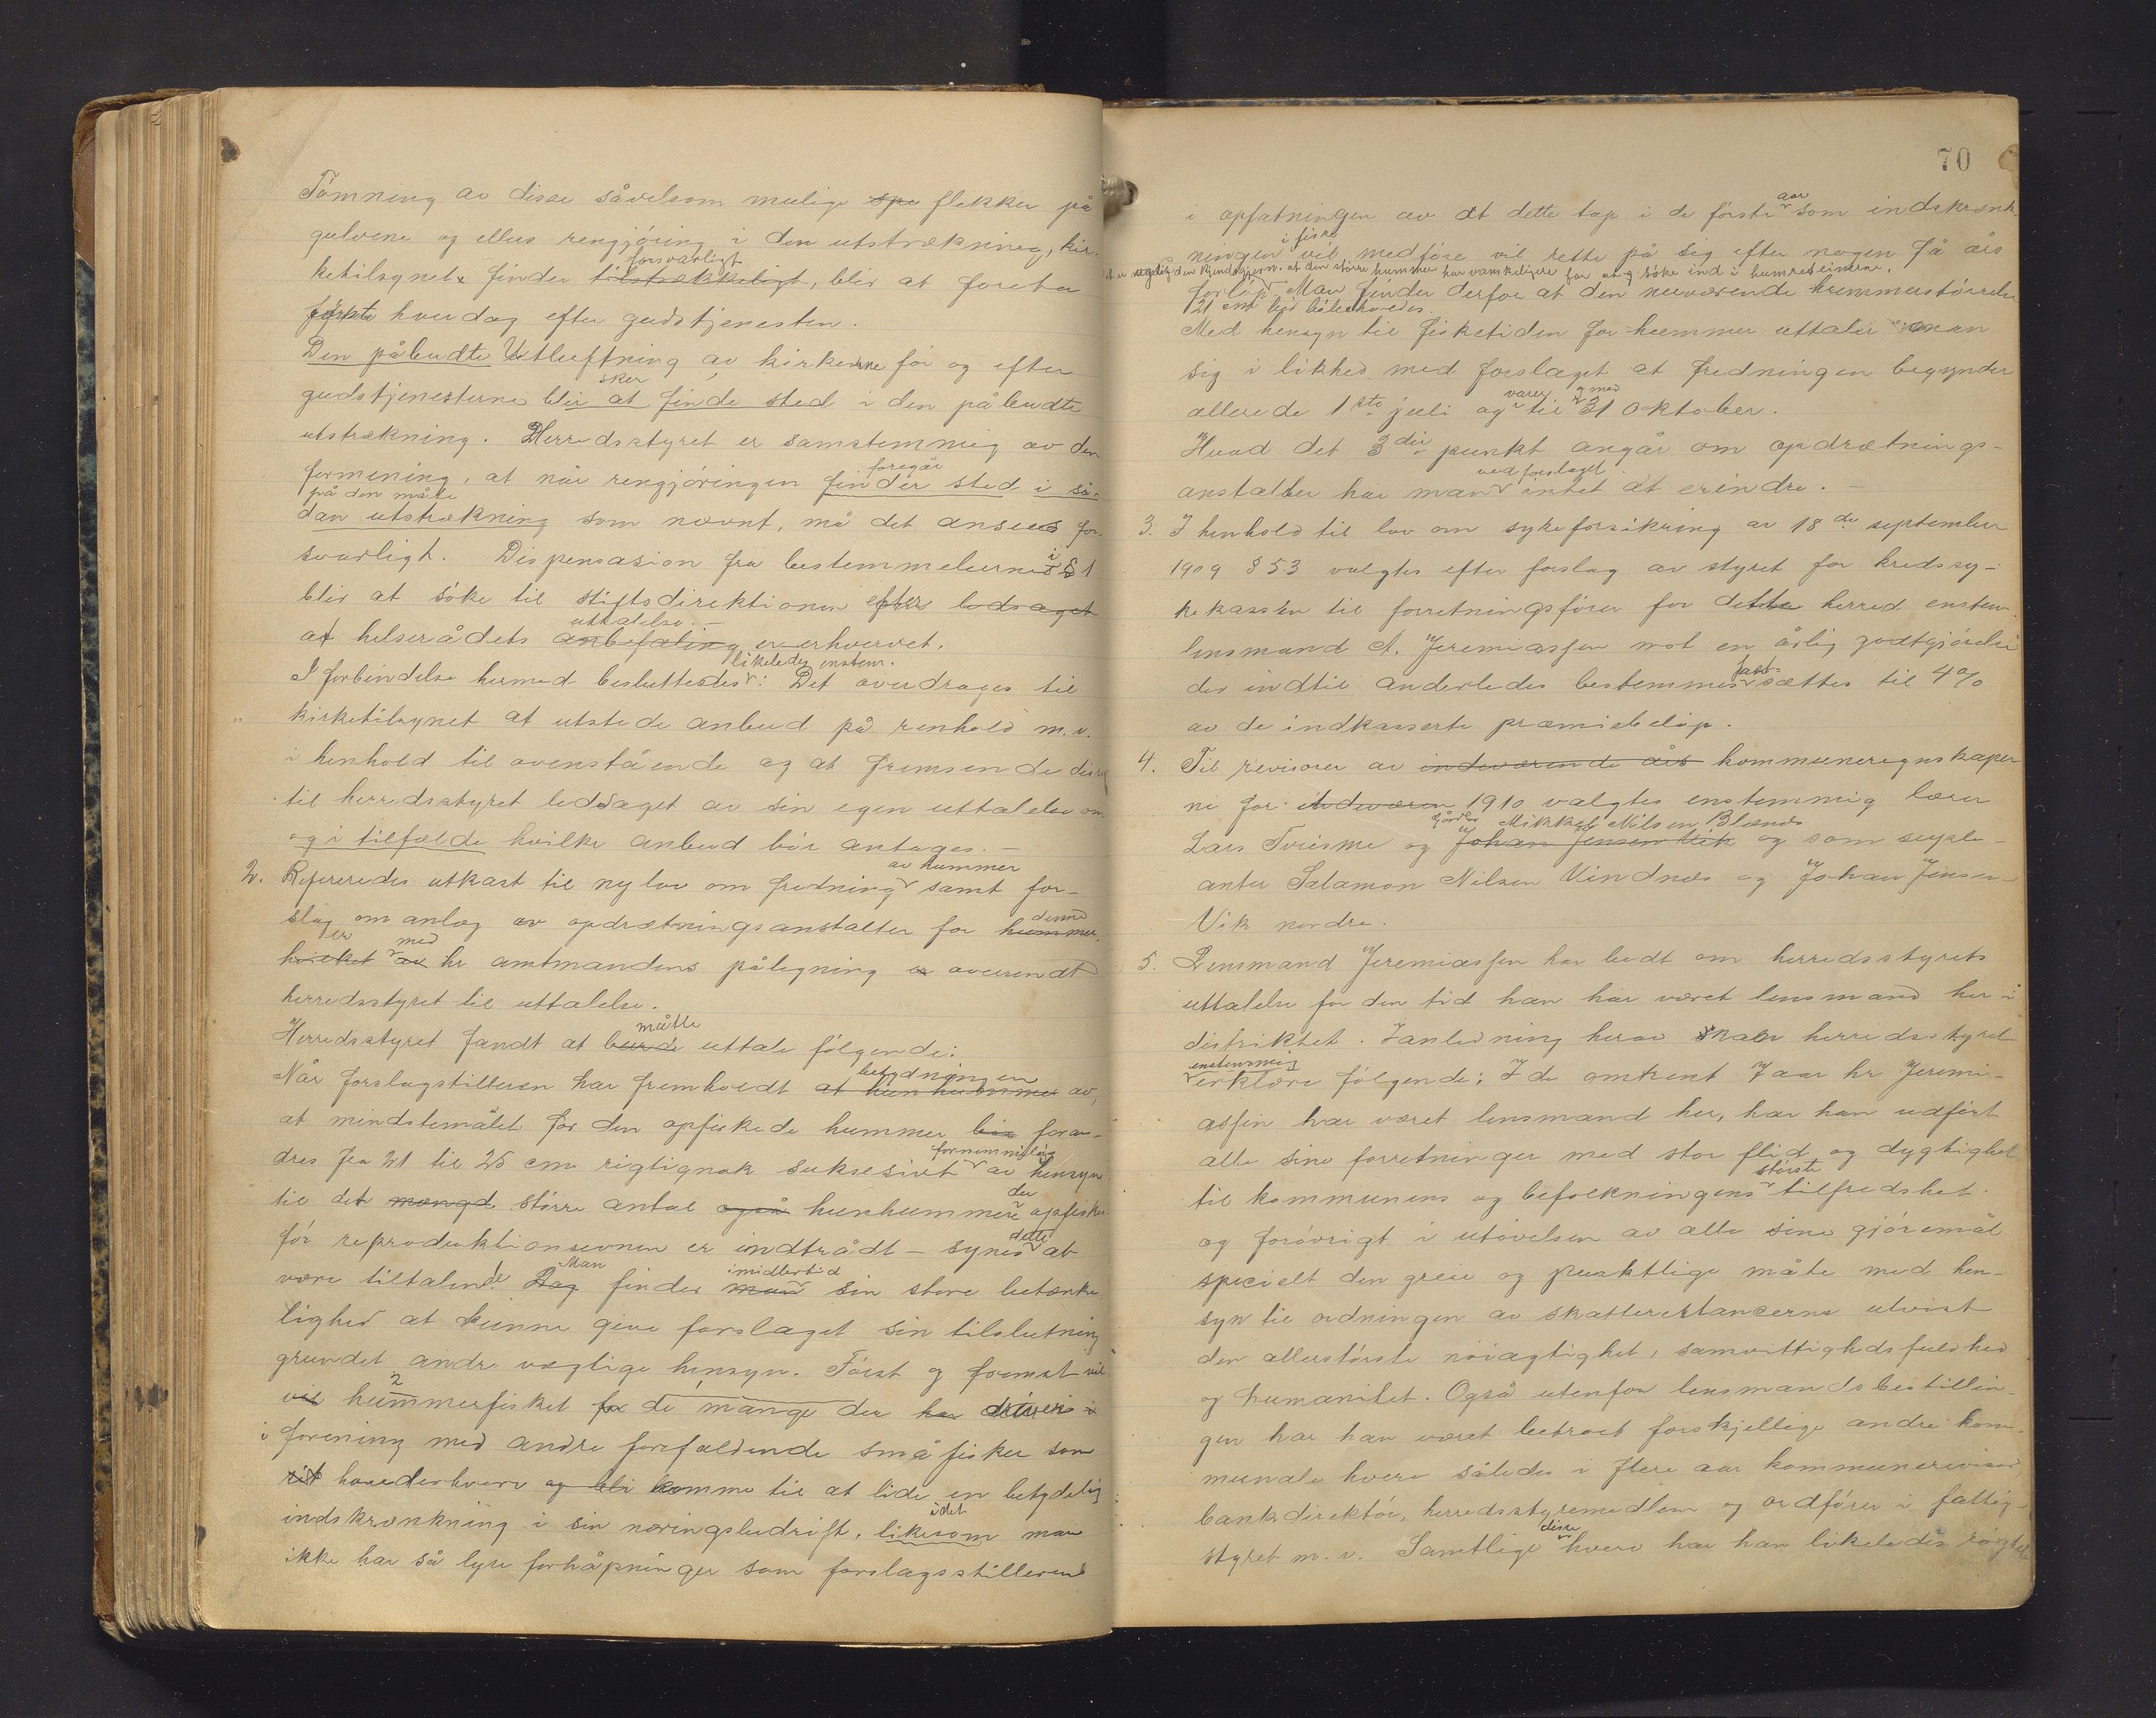 Tömning av disse såvelsom mulige spe flekker på
gulvene og ellers rengjöring i den utstrækning, kir-
forsvarligt
ketilsynet finder tilstrækkeligt, blir at foreta
förste hverdag efter gudstjenesten.
Den påbudte Utluftning av kirkerne för og efter
sker
gudstjenesterne blir at finde sted i den påbudte
utstrækning. Herredsstyret er samstemmig av den
foregår
formening, at når rengjöringen finder sted i så-
på den måte
dan utstrækning som nævnt, må det ansees for-
svarligt. Dispensasion fra bestemmelserne i § 1
blir at söke til stiftsdirektionen efter ledsaget
uttalelse.-
af helserådets anbefaling er erhvervet.
likeledes enstem.
I forbindelse hermed besluttedes: Det overdrages til
kirketilsynet at utstede anbud på renhold m.v.
i henhold til ovenstående og at fremsende disse
til herredsstyret ledsaget av sin egen uttalelse om
og i tilfælde hvilke anbud bör antages.-
av hummer
2. Refereredes utkast til ny lov om fredning samt for-
denne
slag om anlæg av opdrætningsanstalter for hummer,
er med
hvilket av hr amtmandens påtegning er oversendt
herredsstyret til uttalelse.
måtte
Herredsstyret fandt at burde uttale fölgende:
betydningen
Når forslagstilleren har fremholdt at hunhummer av,
at mindstemålet for den opfiskede hummer bör foran-
fornemmelig
dres fra 21 til 25 cm rigtignok suksesivt av hensyn
der
til det mængde större antal også hunhummere opfiskes
dette
för reproduktionsevnen er indtrådt - synes at
Man imidlertid
være tiltalende. Dog finder man sin store betænke-
lighed at kunne give forslaget sin tilslutning
grundet andre vægtige hensyn. Först og fremst vil
2
vil hummerfisket for de mange der har driver i
i forening med andre forefaldende småfisker som
sit hovederhverv og bli komme til at lide en betydelig
idet
indskrænkning i sin næringsbedrift, likesom man
ikke har så lyse forhåpninger som forslagsstilleren
70
aar
i opfatningen av at dette tap i de förste som indskrænk-
i fisket
ningen vil medföre vil rette på sig efter nogen få års
den kjendsgjern. at den större hummer har vanskeligere for at söke ind i hummerteinerne.
forlöp. Man finder derfor at den nuværende hummerstörrelse
21 cm bör bibeholdes.
Med hensyn til fisketiden for hummer uttaler man
sig i likhed med forslaget at fredningen begynder
varer og med
allerede 1ste juli og til 31 oktober.
Hvad det 3die punkt angår om opdrætnings-
ved forslaget
anstalter har man intet at erindre.-
3. I henhold til lov om sykeforsikring av 18de september
1909 § 53 valgtes efter forslag av styret for kredssy-
kekassen til forretningsförer for dette herred enstem.
lensmand A. Jeremiassen mot en årlig godtgjörelse
fast-
der indtil anderledes bestemmes sættes til 4%
av de indkasserte præmiebelöp.
4. Til revisorer av indeværende års kommuneregnskaper
ne for indeværen 1910 valgtes enstemmig lærer
gårdbr Mikkel Nilsen
Lars Tvisme og Johan Jensen Vik og som suple-
anter Salamon Nilsen Vindnæs og Johan Jensen
Vik nordre.
5. Lensmand Jeremiassen har bedt om herredsstyrets
uttalelse for den tid han har været lensmand her i
distriktet. I anledning herav skal herredsstyret
enstemmig
erklære fölgende: I de omtrent 7 aar hr Jeremi-
assen har været lensmand her, har han udfört
alle sine forretninger med stor flid og dygtighet
störste
til kommunens og befolkningens tilfredshet
og forövrigt i utövelsen av alle sine gjöremål
specielt den greie og punktlige måte med hen-
syn til ordningen av skatterestancerne utvist
den allerstörste nöiagtighet, samvittighedsfuldhed
og humanitet. Også utenfor lensmandsbestillin-
gen har han været betroet forskjellige andre kom-
munale hverv således i flere aar kommunerevisor
bankdirektör, herredsstyremedlem og ordförer i fattig-
disse
styret m.v. Samtlige hverv har han likeledes rögtet